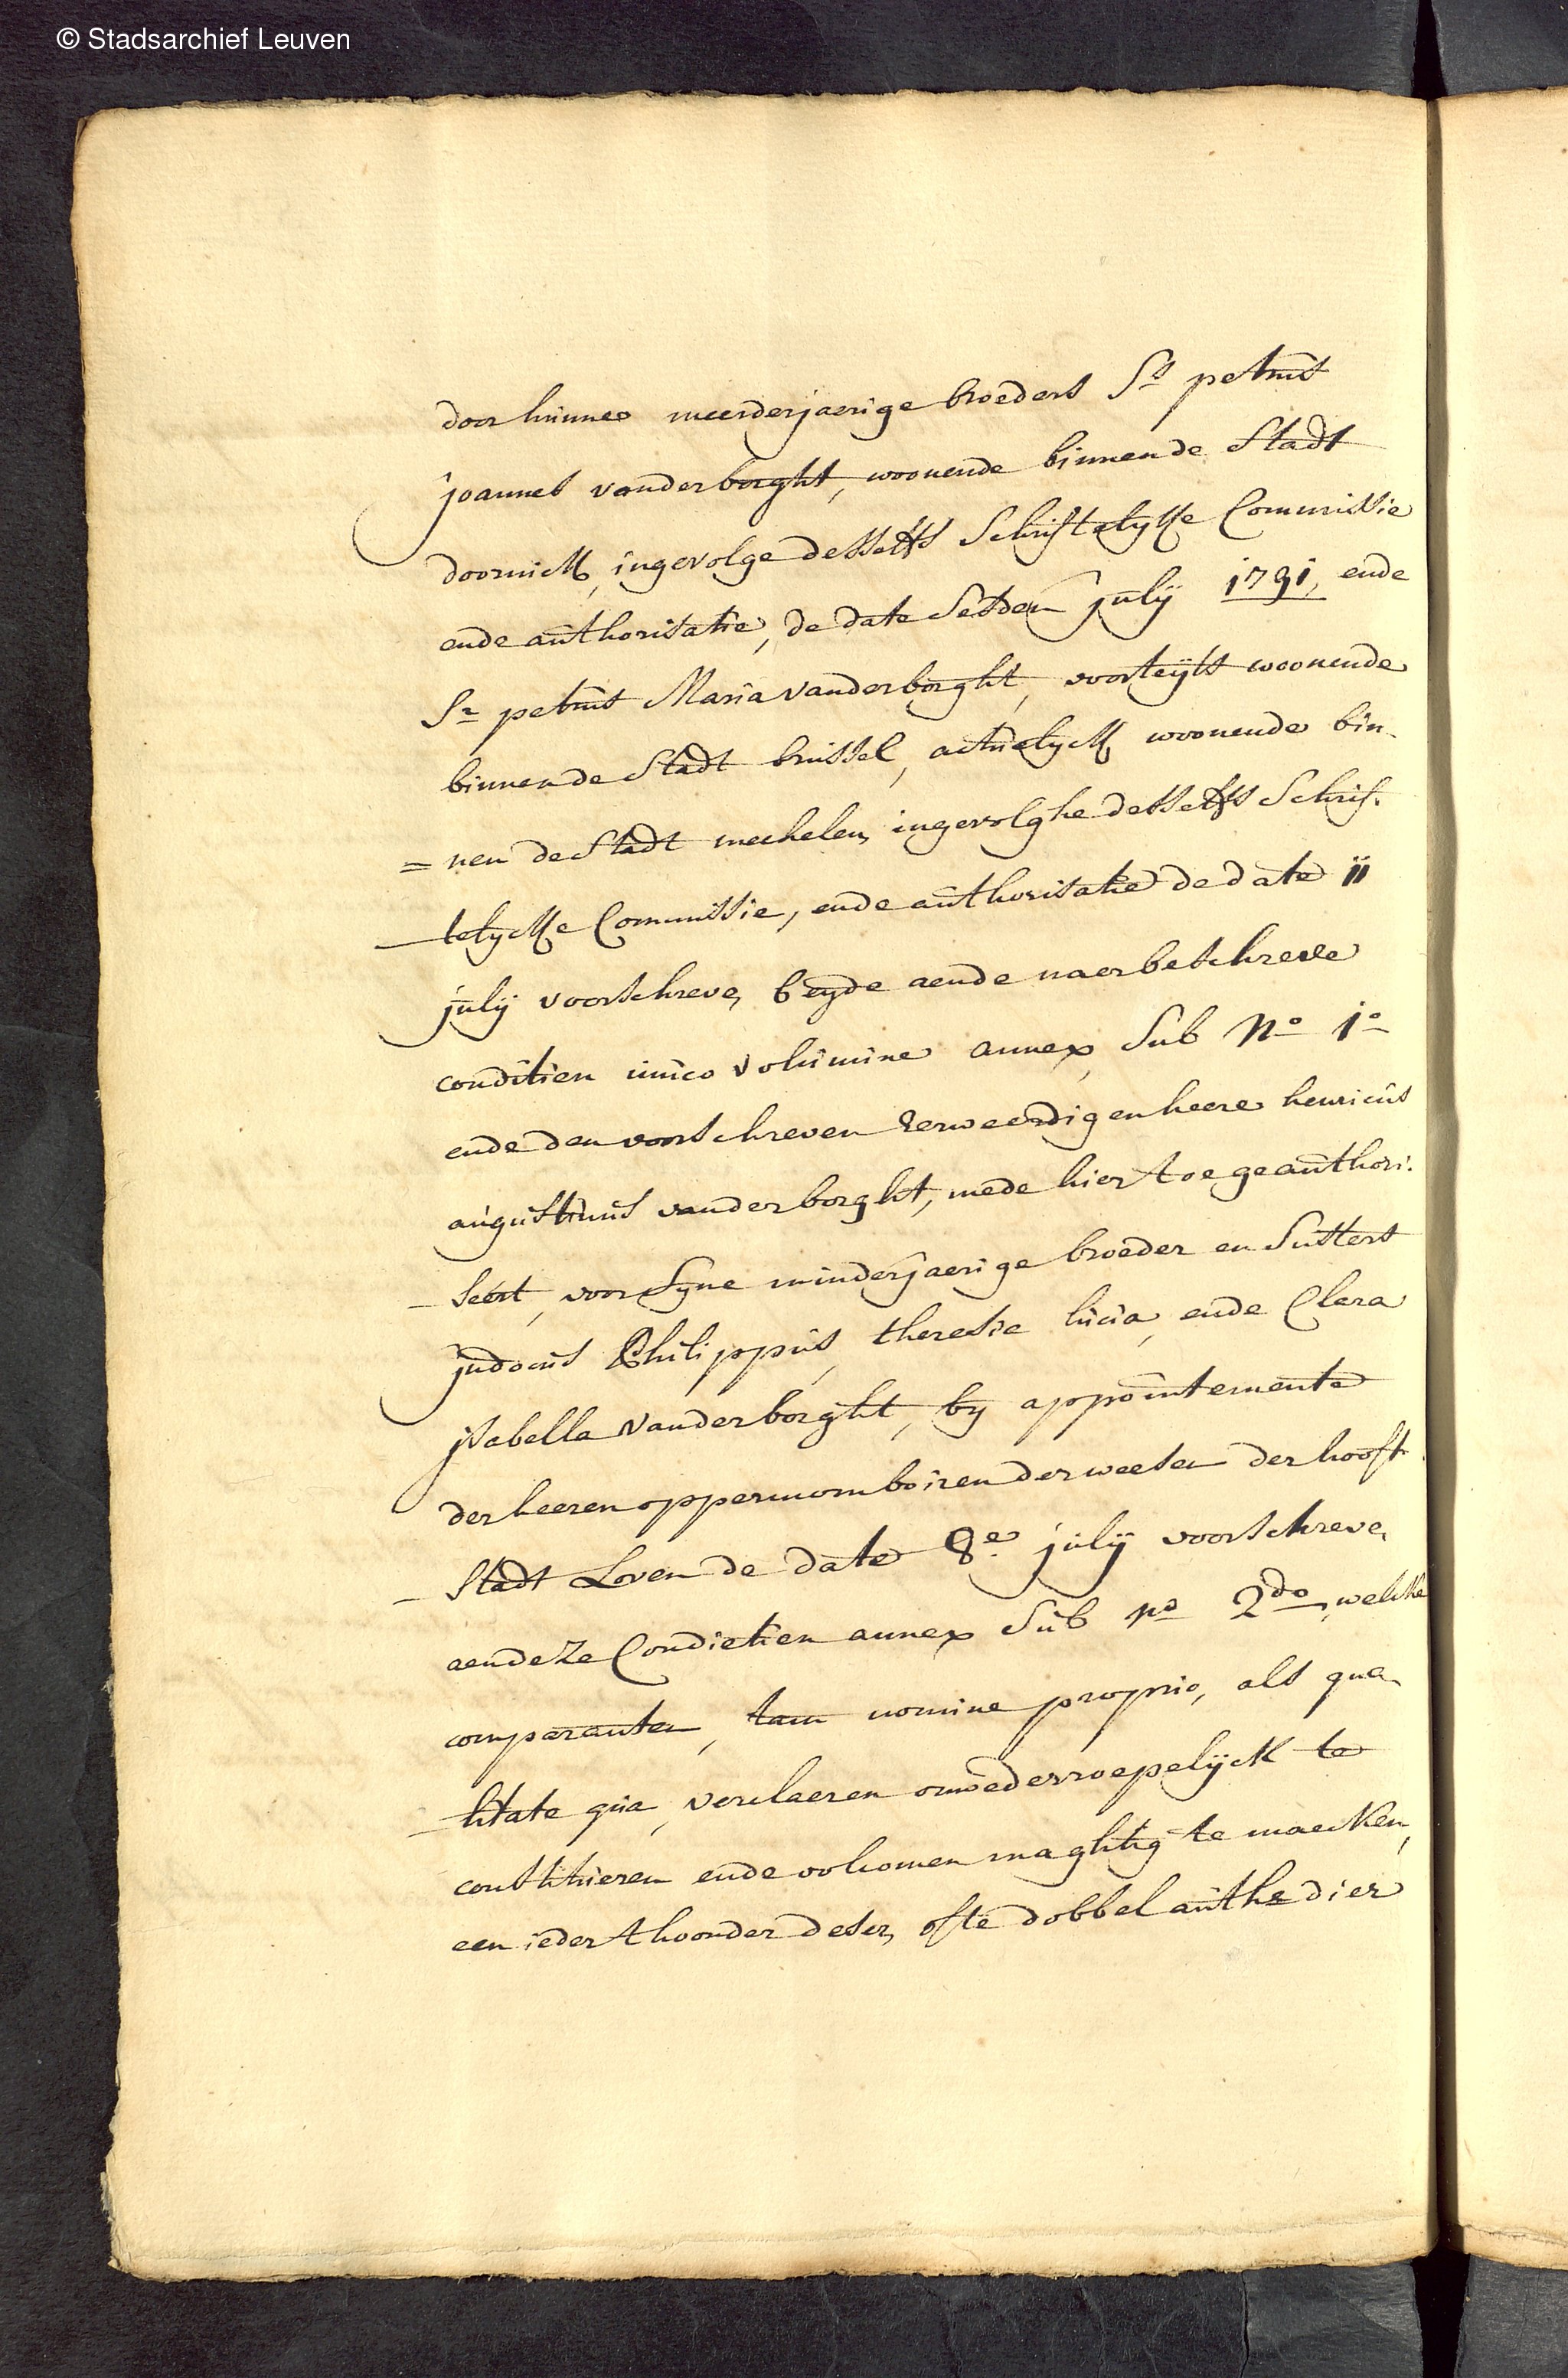 © Stadsarchief Leuven
door hunne meerderjaerige broeders Sr petrus
joannes vanderborght, woonende binnen de Stadt
doornick, ingevolge desselfs Schriftelycke Commissie
ende authorisatie, de date Sesden july 1791, ende
Sr petrus Maria vanderborght, voorteyts woonende
binnen de Stadt brussel, actuelyck woonende bin-
= nen de Stadt mechelen, ingevolghe desselfs Schrif-
telycke Commissie, ende authorisatie de date 11
july voorschreve, beyde aende naerbeschreve
conditien unico volumine annex, Sub No 1o
ende den voorschreven Eerweerdigen heere henricus
augustinus vanderborght, mede hier toe geauthori-
- seert, voor Syne minderjaerige broeder en Susters
judocus Philippus, theresia lucia, ende Clara
jsabella vanderborght, by appointemente
der heeren oppermomboiren der weesen der hooft
- Stadt Loven de date 8e july voorschreve,
aen deze Condietien annex Sub no 2do, welcke
comparanten, tam nomine proprio, als qua-
- litate qua, verclaeren onwederroepelyck te
constitueren ende volcomen maghtig te maecken,
een ieder thoonder deser, ofte dobbel authe dier